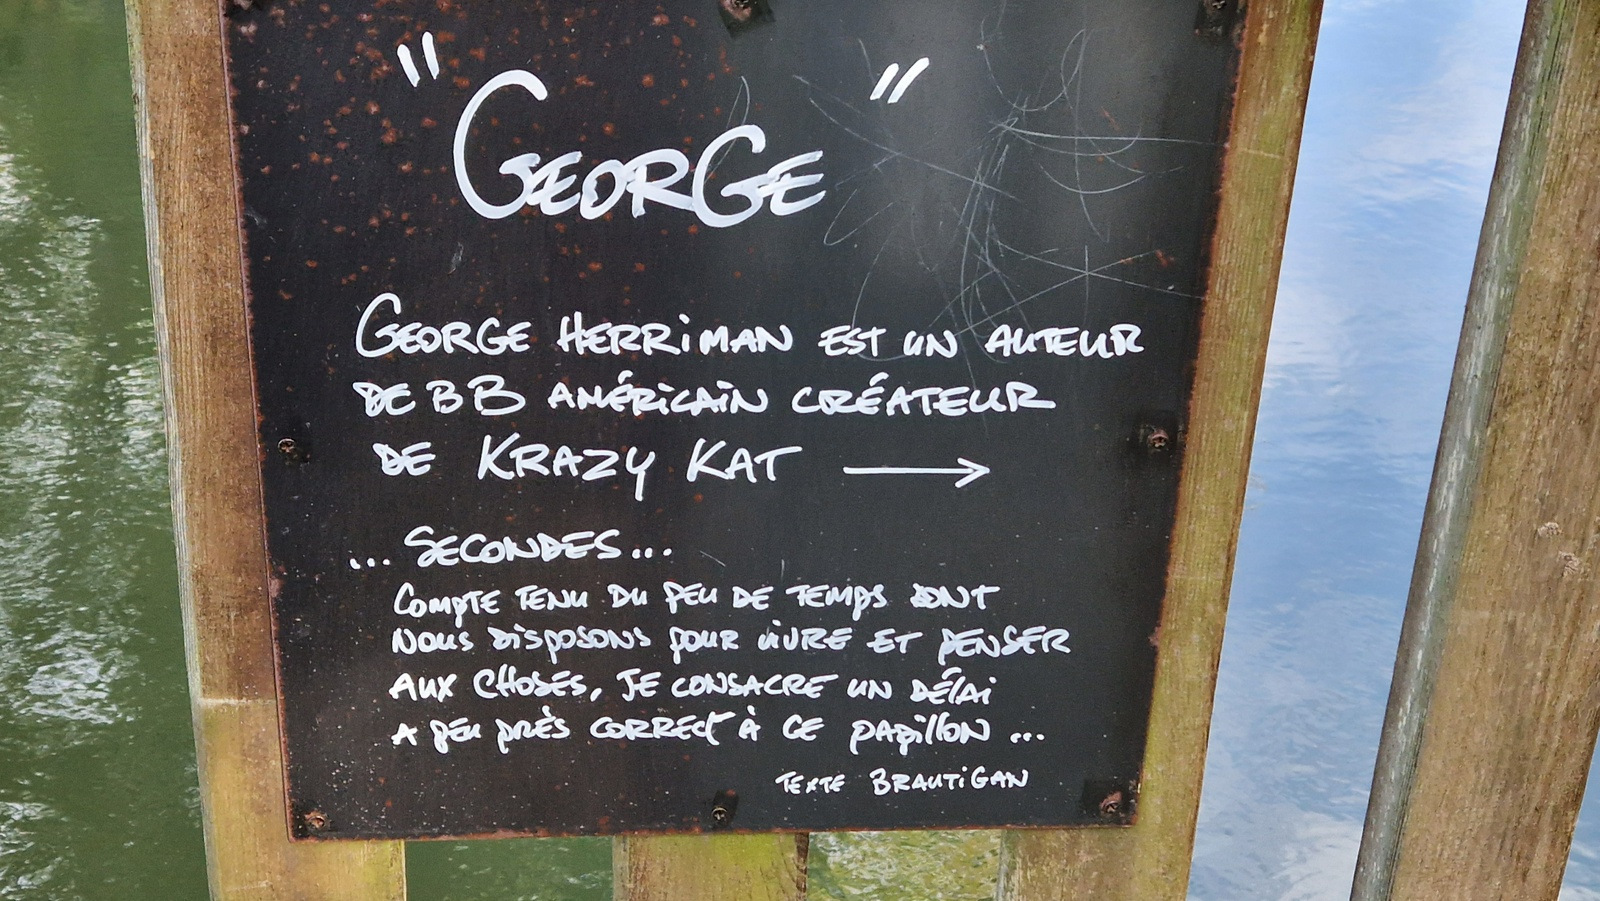 "GEORGE"
GEORGE HERRIMAN EST UN AUTEUR
DE BB AMÉRICAIN CRÉATEUR
DE KRAZY KAT →
... SECONDES...
COMPTE TENU DU PEU DE TEMPS DONT
NOUS DISPOSONS POUR VIVRE ET PENSER
AUX CHOSES, JE CONSACRE UN DÉLAI
A PEU PRÈS CORRECT À CE PAPILLON ...
TEXTE BRAUTIGAN